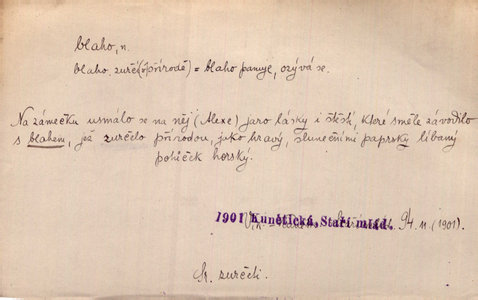 blaho, n.
blaho zurčí (v přírodě) = blaho panuje, ozývá se.
Na zámečku usmálo se na něj (Alexe) jaro lásky i štěstí, které směle závodilo
s blahem, jež zurčelo přírodou, jako hravý, slunečními paprsky líbaný
potůček horský.
1901 Kunětická, Staří mlád.
94 n (1901).
Sr. zurčeti.